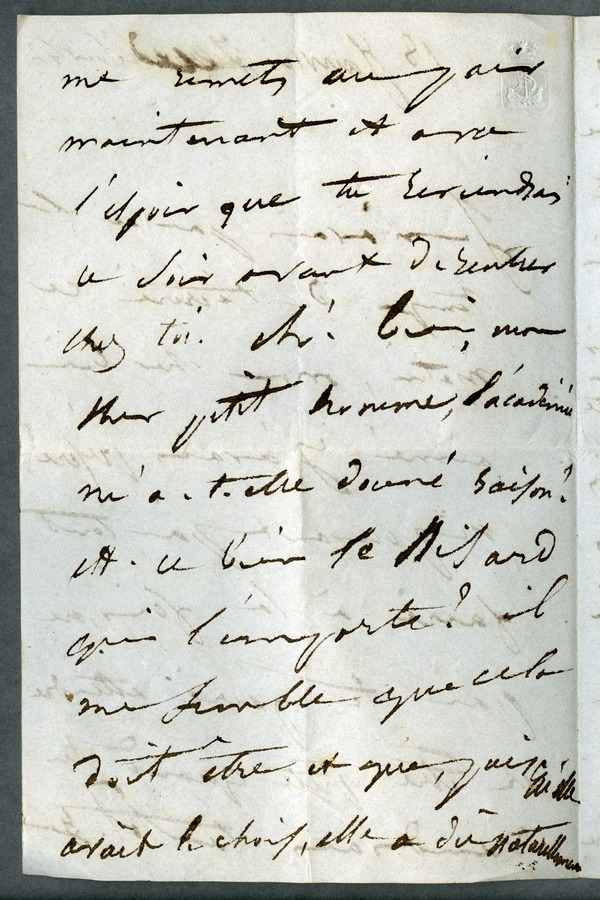 me remets au jour
maintenant et avec
l'espoir que tu reviendras
ce soir avant de rentrer
chez toi. eh! bien, mon
cher petit homme, l'académie
m'a-t-elle donné raison?
est-ce bien le Nisard
qui l'emporte? il
me semble que cela
doit être et que, puisqu'elle
avait le choix, elle a dû naturellement